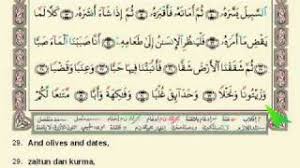 ٱلسَّبِيلَ يَسَّرَهُۥ ۝ ثُمَّ أَمَاتَهُۥ فَأَقْبَرَهُۥ ۝ ثُمَّ إِذَا شَآءَ أَنشَرَهُۥ ۝ كَلَّا لَمَّا
يَقْضِ مَآ أَمَرَهُۥ ۝ فَلْيَنظُرِ ٱلْإِنسَٰنُ إِلَىٰ طَعَامِهِۦٓ ۝ أَنَّا صَبَبْنَا ٱلْمَآءَ صَبًّا
۝ ثُمَّ شَقَقْنَا ٱلْأَرْضَ شَقًّا ۝ فَأَنۢبَتْنَا فِيهَا حَبًّا ۝ وَعِنَبًا وَقَضْبًا ۝
وَزَيْتُونًا وَنَخْلًا ۝ وَحَدَآئِقَ غُلْبًا ۝ وَفَٰكِهَةً وَأَبًّا ۝ مَّتَٰعًا لَّكُمْ
29. And olives and dates,
29. zaitun dan kurma,